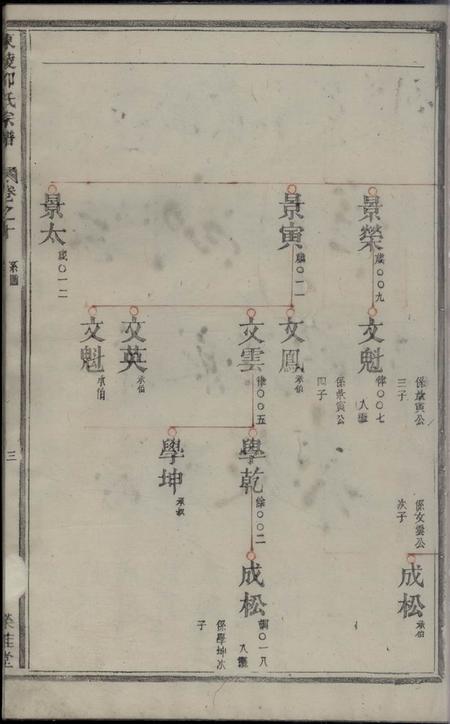 景榮
歲〇〇九
景寅
歲〇一一
景太
歲〇一二
文魁
律〇〇七
入繼
係敘寅公
三子
文鳳
承伯
係敘寅公
四子
文雲
律〇〇五
文英
承伯
文魁
承伯
學乾
餘〇〇二
學坤
承叔
係文雲公
次子
成松
承伯
成松
調〇一八
入繼
係學坤次
子
氏宗譜
卷之十
系圖
三
榮桂堂